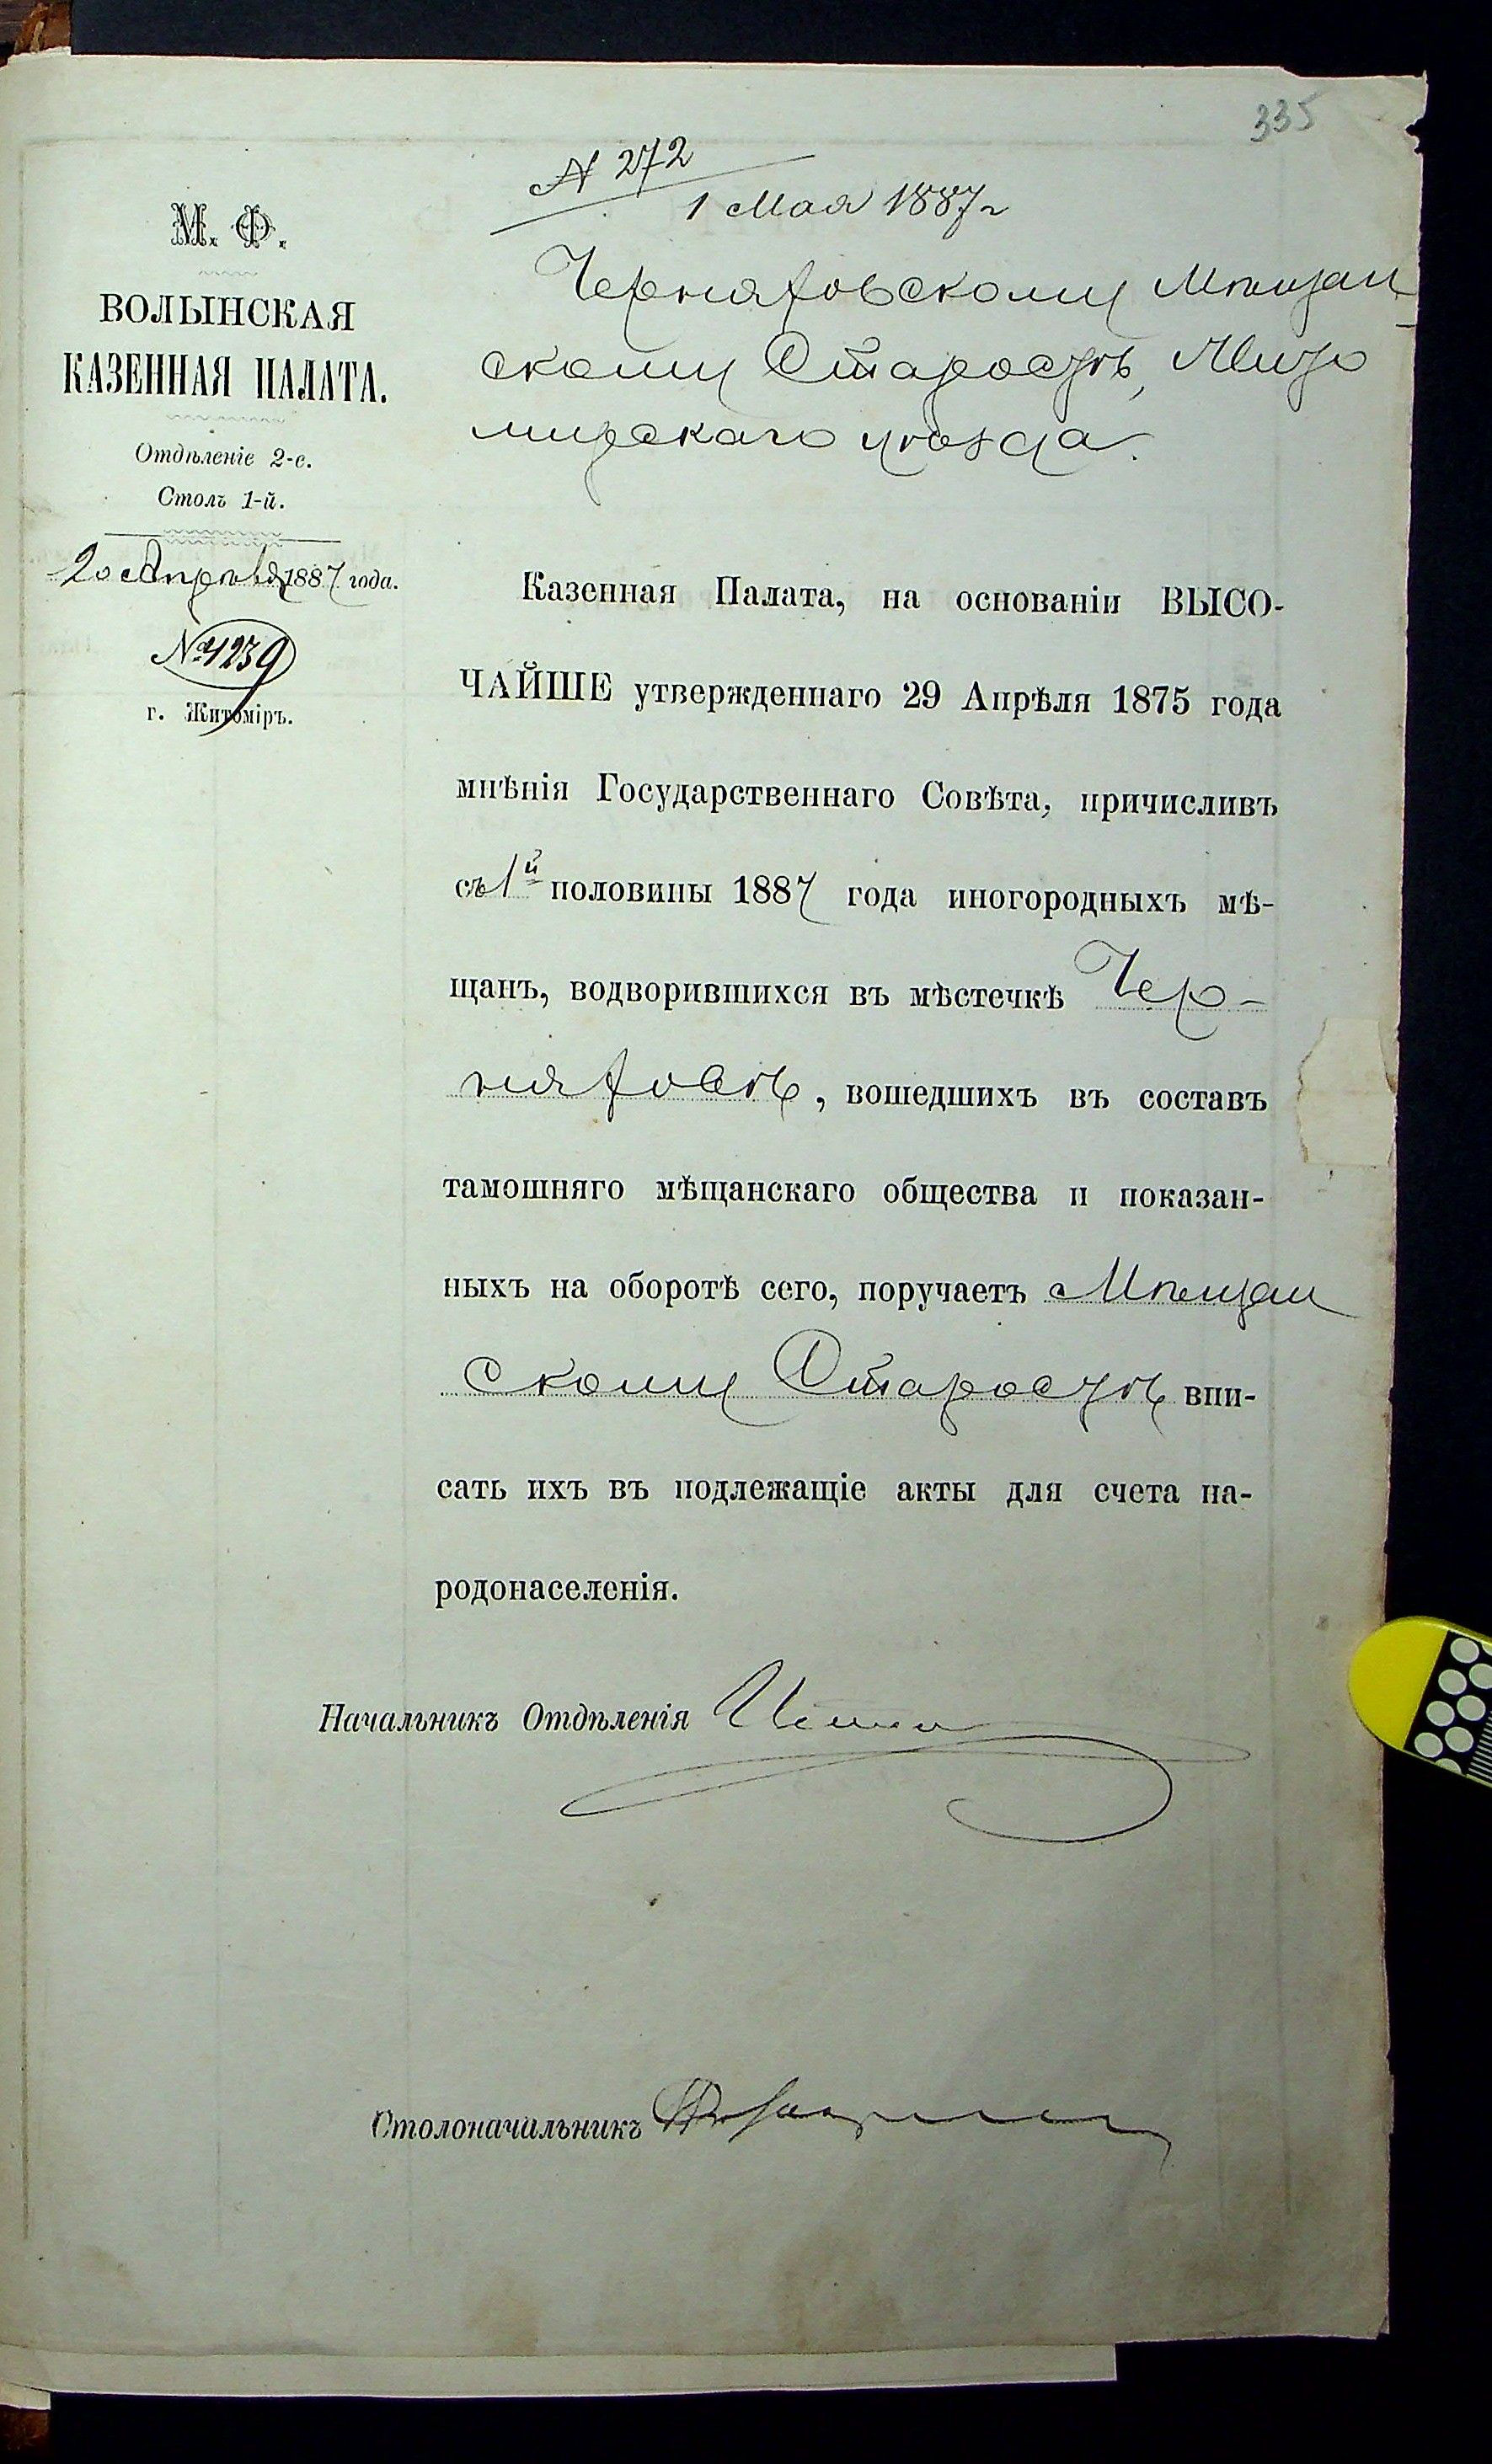 335
№ 272
1 Мая 1887 г
М. Ф.
ВОЛЫНСКАЯ
КАЗЕННАЯ ПАЛАТА.
Отдѣленіе 2-е.
Столъ 1-й.
20 Апрѣля 1887 года.
№ 4239
г. Житоміръ.
Черняховскому Мѣщан
скому Старостѣ, Жито
мирскаго уѣзда.
Казенная Палата, на основаніи ВЫСО-
ЧАЙШЕ утвержденнаго 29 Апрѣля 1875 года
мнѣнія Государственнаго Совѣта, причисливъ
съ 1й половины 1887 года иногородныхъ мѣ-
щанъ, водворившихся въ мѣстечкѣ Чер-
няховѣ, вошедшихъ въ составъ
тамошняго мѣщанскаго общества и показан-
ныхъ на оборотѣ сего, поручаетъ Мѣщан
скому Старостѣ впи-
сать ихъ въ подлежащіе акты для счета на-
родонаселенія.
Начальникъ Отдѣленія
Столоначальникъ